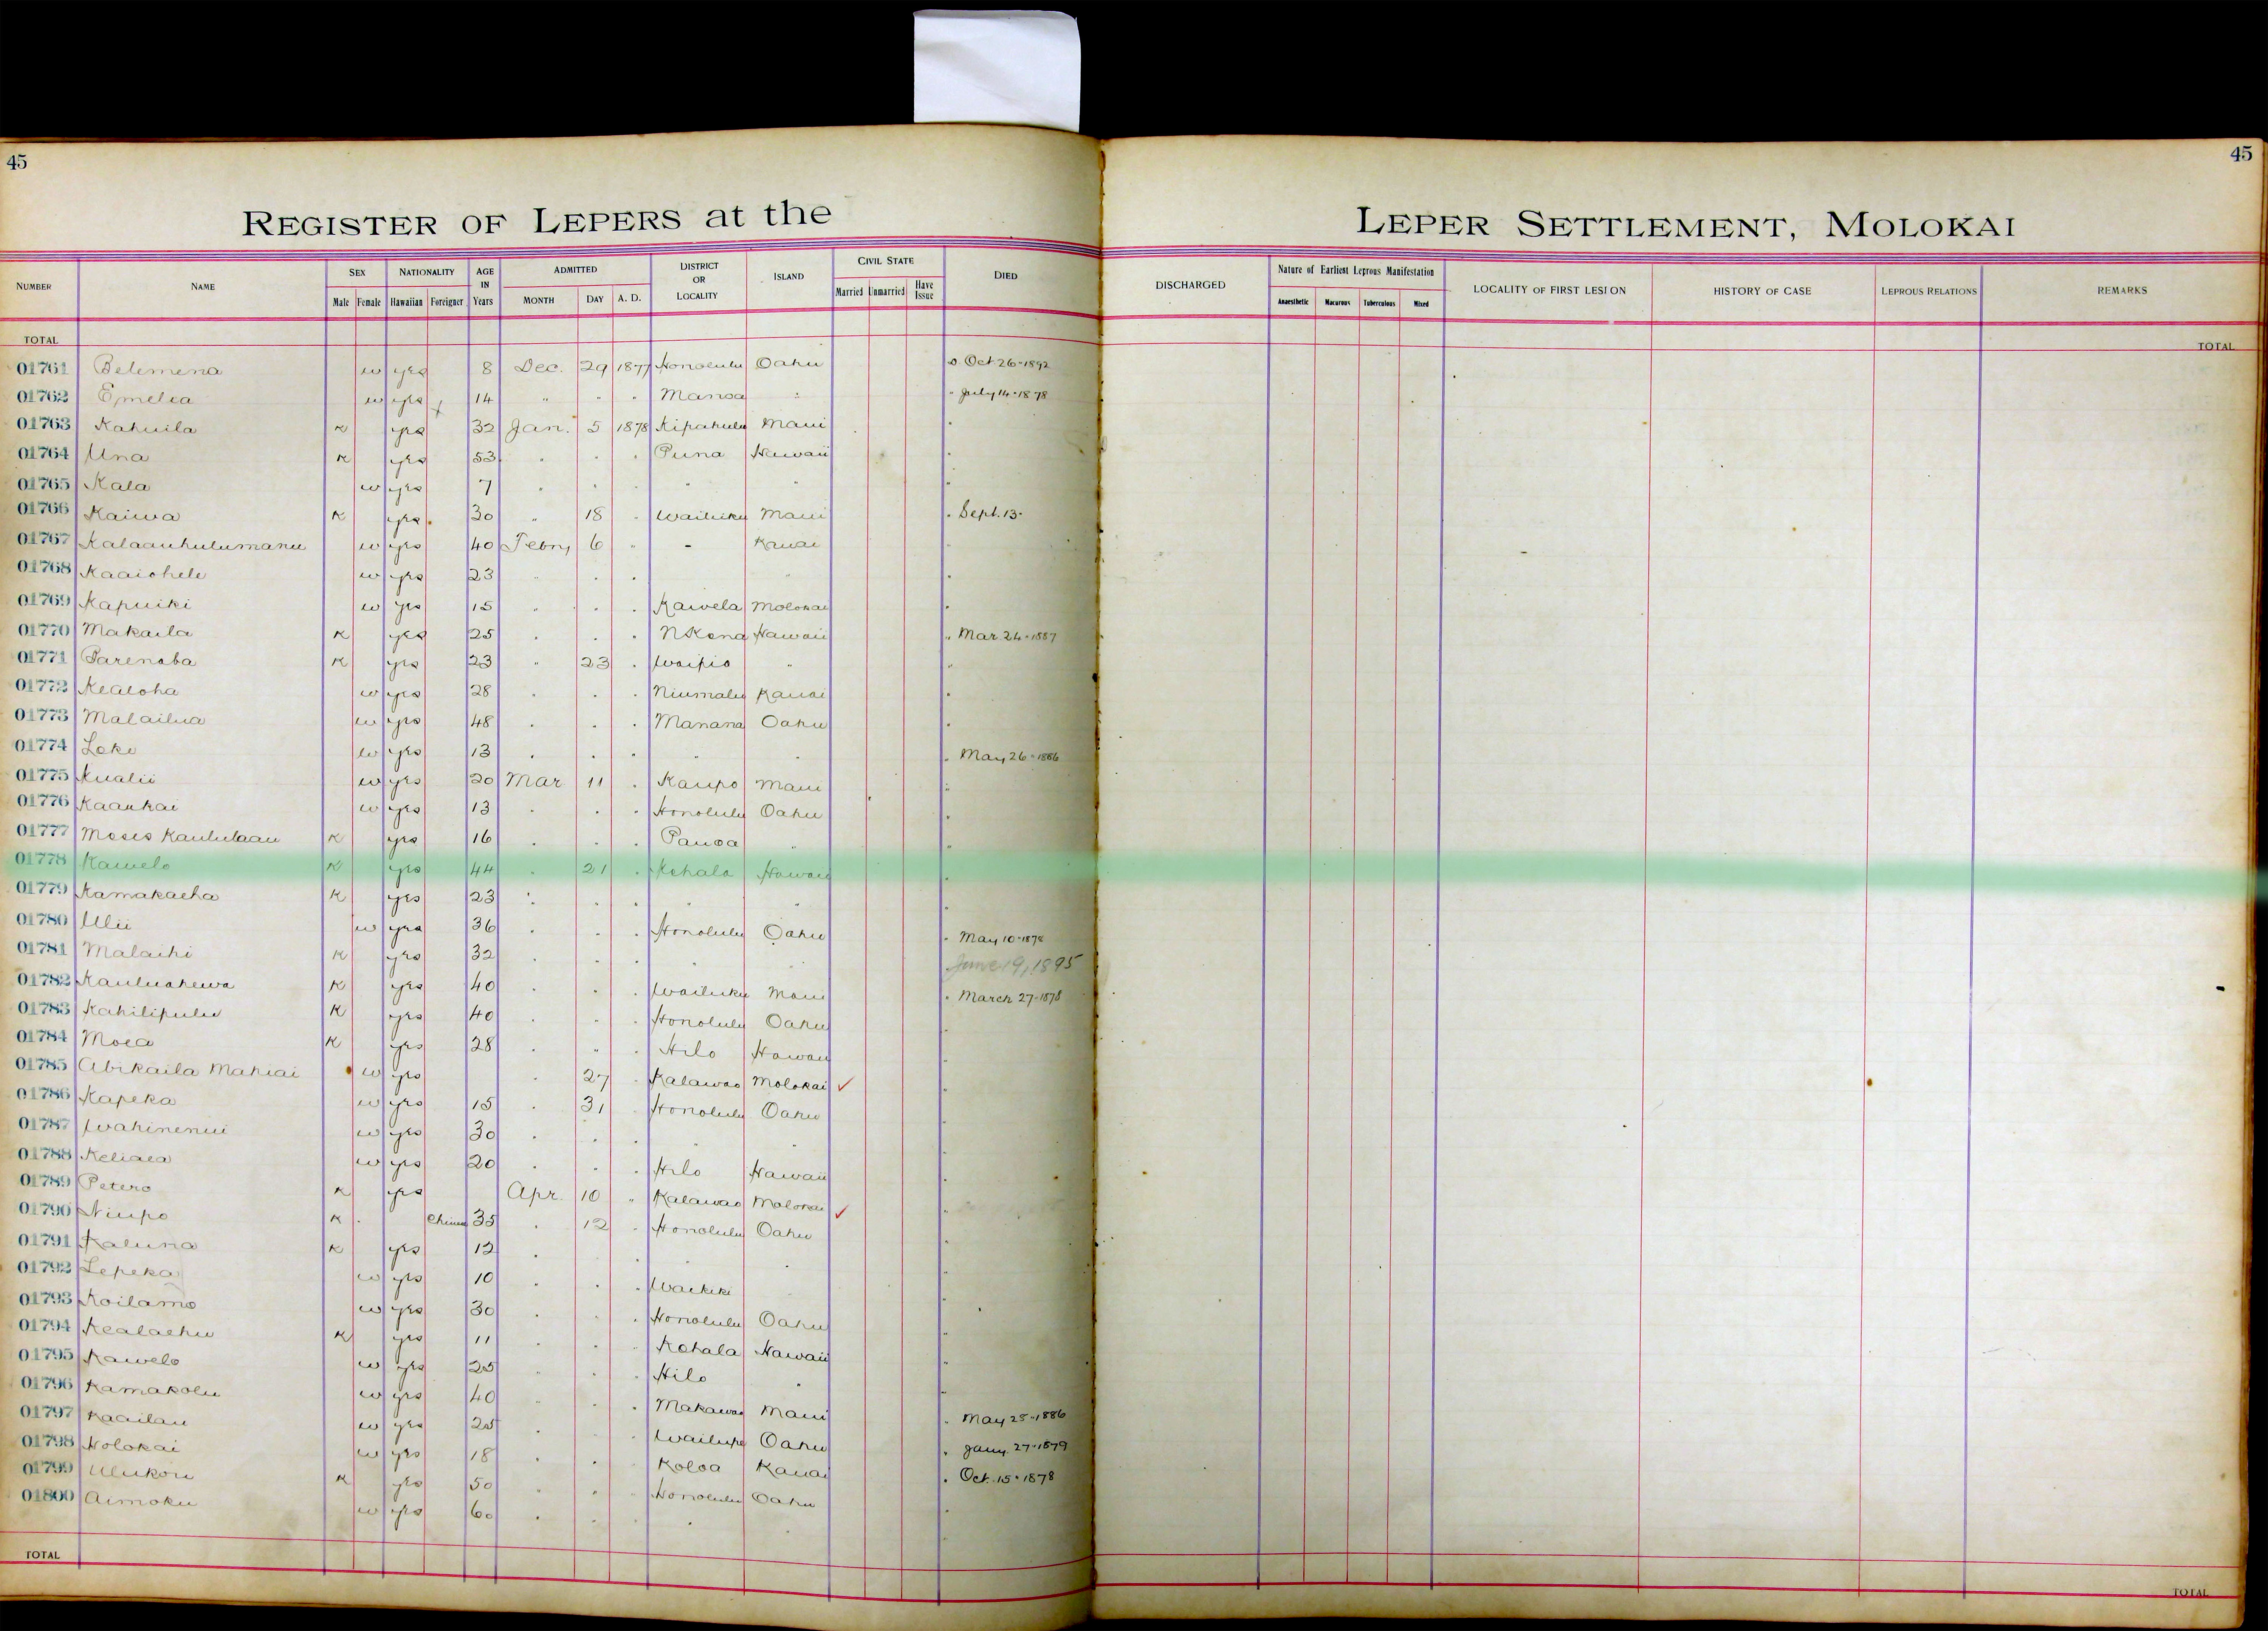 45
45
REGISTER OF LEPERS at the LEPER SETTLEMENT, MOLOKAI
NUMBER NAME SEX Male Female NATIONALITY Hawaiian Foreigner AGE IN Years ADMITTED MONTH DAY A. D. DISTRICT OR LOCALITY ISLAND CIVIL STATE Married Unmarried Have Issue DIED DISCHARGED Nature of Earliest Leprous Manifestation Anaesthetic Macurous Tuberculous Mixed LOCALITY OF FIRST LESION HISTORY OF CASE LEPROUS RELATIONS REMARKS
TOTAL TOTAL
01761 Belemena w yes 8 Dec. 29 1877 Honolulu Oahu Oct 26-1892
01762 Emelia w yes 14 " " " Manoa " " July 14-1878
01763 Kahuila K yes 32 Jan. 5 1878 Kipahulu Maui
01764 Una K yes 53 " " " Puna Hawaii
01765 Kala w yes 7 " " " " "
01766 Kaiwa K yes 30 " 18 " Wailuku Maui " Sept. 13-
01767 Kalaauhulumanu w yes 40 Febry 6 " - Kauai
01768 Kaaiohele w yes 23 " " " "
01769 Kapuiki w yes 15 " " " Kawela Molokai
01770 Makaila K yes 25 " " " N Kona Hawaii " Mar 24-1887
01771 Parenaba K yes 23 " 23 " Waipio "
01772 Kealoha w yes 28 " " " Niumalu Kauai
01773 Malailua w yes 48 " " " Manana Oahu
01774 Loke w yes 13 " " " " " " May 26-1886
01775 Kualii w yes 20 Mar 11 " Kaupo Maui
01776 Kaaukai w yes 13 " " " Honolulu Oahu
01777 Moses Kaululaau K yes 16 " " " Pauoa "
01778 Kawelo K yes 44 " 21 " Kohala Hawaii
01779 Kamakaeha K yes 23 " " " " "
01780 Ulii w yes 36 " " " Honolulu Oahu " May 10-1878
01781 Malaihi K yes 32 " " " " " June 19, 1895
01782 Kauluahewa K yes 40 " " " Wailuku Maui " March 27-1878
01783 Kahilipulu K yes 40 " " " Honolulu Oahu
01784 Moea K yes 28 " " " Hilo Hawaii
01785 Abikaila Mahiai w yes " 27 " Kalawao Molokai ✓
01786 Kapeka w yes 15 " 31 " Honolulu Oahu
01787 Wahinenui w yes 30 " " " " "
01788 Keliaea w yes 20 " " " Hilo Hawaii
01789 Petero K yes Apr. 10 " Kalawao Molokai ✓
01790 K Chinese 35 " 12 " Honolulu Oahu
01791 Kaluna K yes 12 " " "
01792 Lepeka w yes 10 " " " Waikiki
01793 Koilamo w yes 30 " " " Honolulu Oahu
01794 Kealaehu K yes 11 " " " Kohala Hawaii
01795 Kawelo w yes 25 " " " Hilo "
01796 Kamakolu w yes 40 " " " Makawao Maui " May 25-1886
01797 Kaailau w yes 25 " " " Wailupe Oahu " Jany. 27-1879
01798 Holokai w yes 18 " " " Koloa Kauai " Oct. 15-1878
01799 Ulukou K yes 50 " " " Honolulu Oahu
01800 Aimoku w yes 60 " " " " "
TOTAL TOTAL